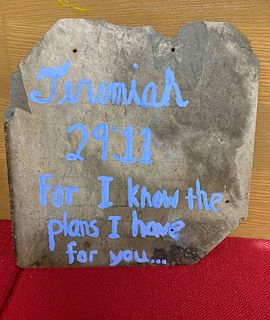 Jeremiah
29:11
For I know the
plans I have
for you...